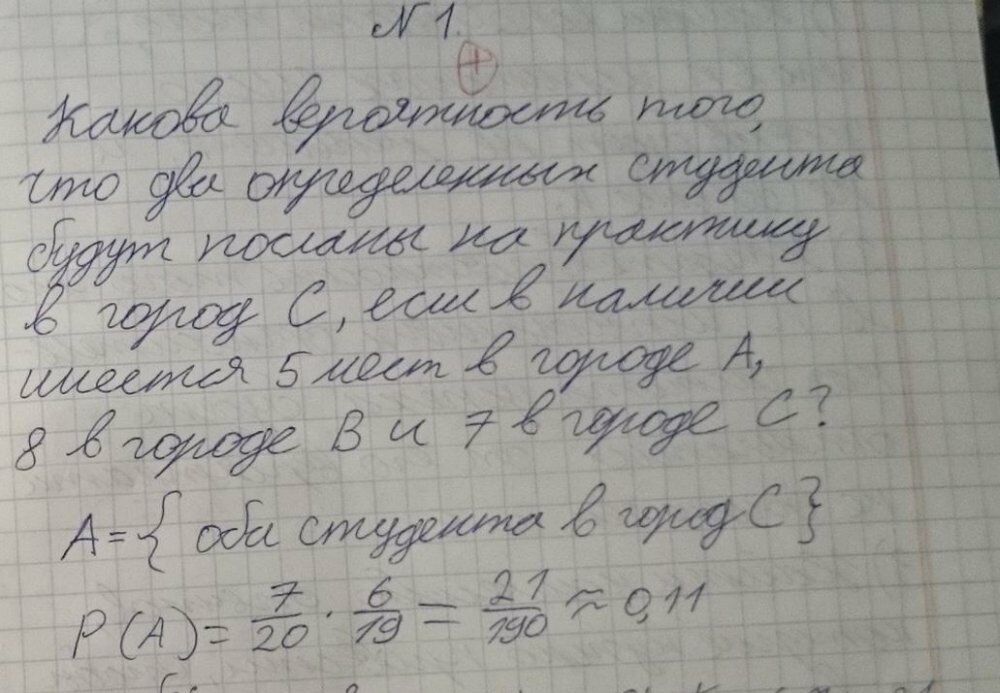 N 1.
+
Какова вероятность того,
что два определенных студента
будут посланы на практику
в город С, если в наличии
имеется 5 мест в городе А,
8 в городе В и 7 в городе С?
А = { оба студента в город С }
P(A) = 7/20 · 6/19 = 21/190 ≈ 0,11